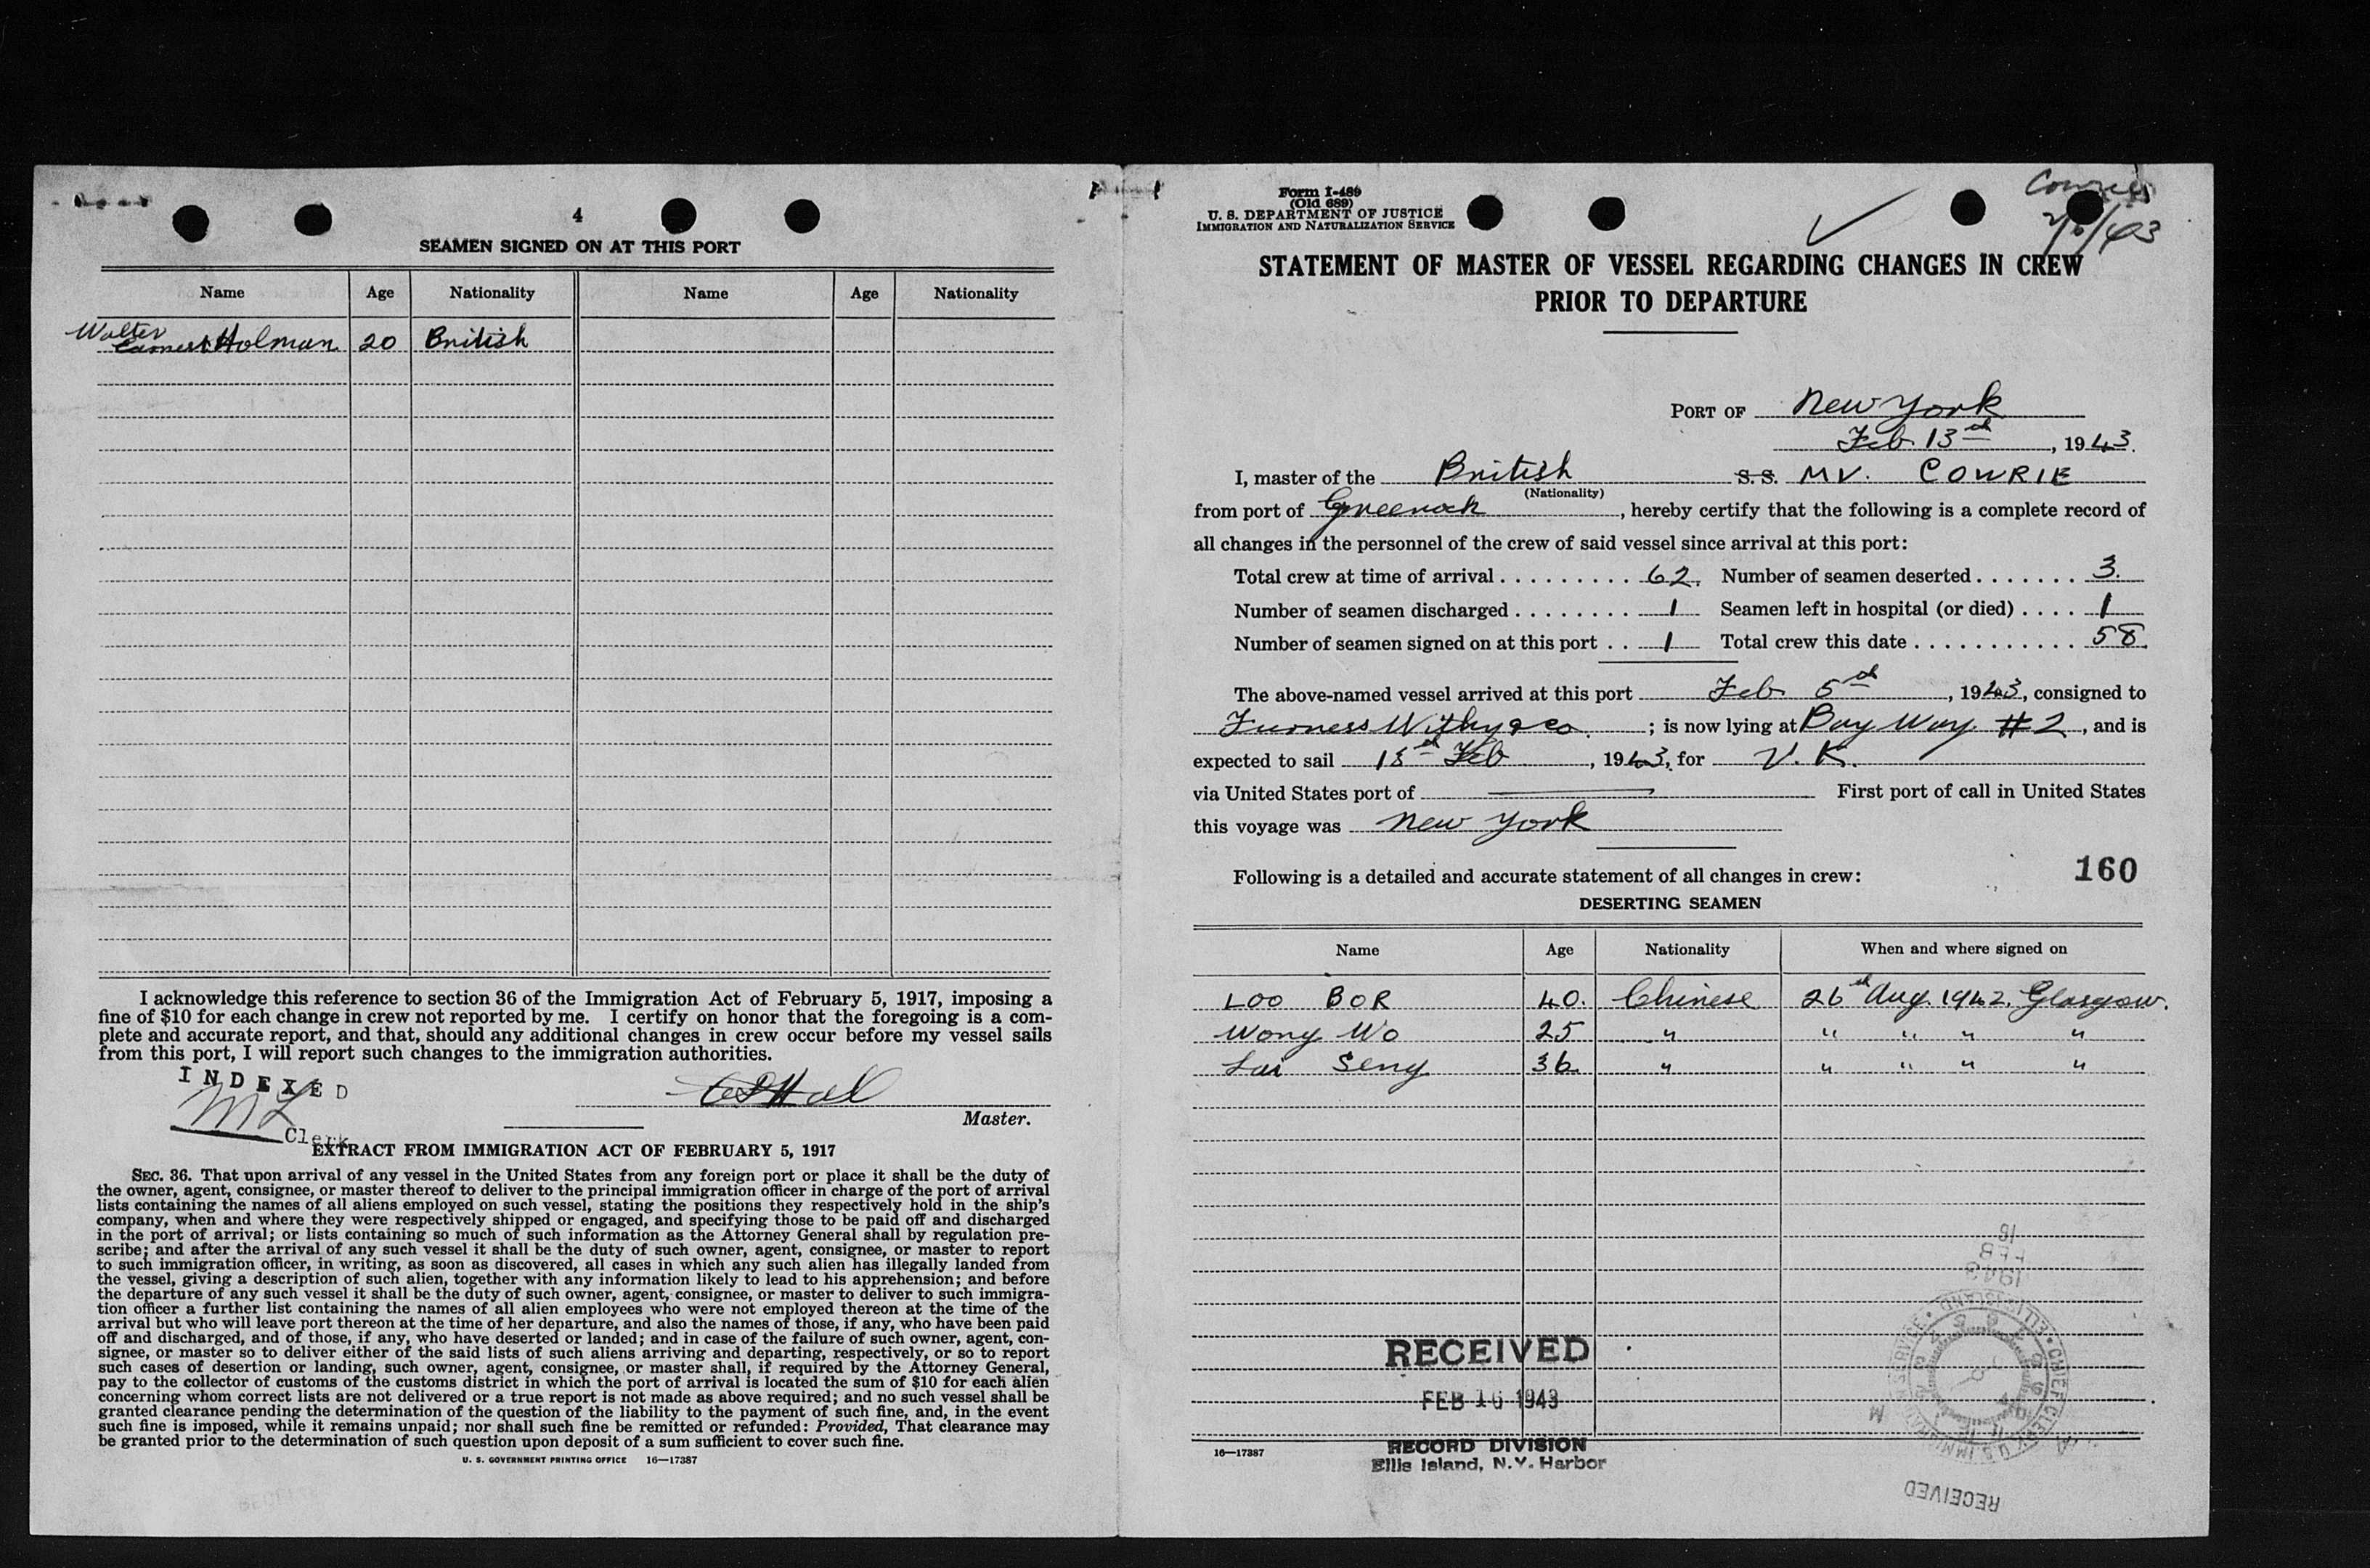 4
SEAMEN SIGNED ON AT THIS PORT
Name Age Nationality Name Age Nationality
Walter
Earnest Holman 20 British
I acknowledge this reference to section 36 of the Immigration Act of February 5, 1917, imposing a
fine of $10 for each change in crew not reported by me. I certify on honor that the foregoing is a com-
plete and accurate report, and that, should any additional changes in crew occur before my vessel sails
from this port, I will report such changes to the immigration authorities.
INDEXED
Clerk
Master.
EXTRACT FROM IMMIGRATION ACT OF FEBRUARY 5, 1917
SEC. 36. That upon arrival of any vessel in the United States from any foreign port or place it shall be the duty of
the owner, agent, consignee, or master thereof to deliver to the principal immigration officer in charge of the port of arrival
lists containing the names of all aliens employed on such vessel, stating the positions they respectively hold in the ship's
company, when and where they were respectively shipped or engaged, and specifying those to be paid off and discharged
in the port of arrival; or lists containing so much of such information as the Attorney General shall by regulation pre-
scribe; and after the arrival of any such vessel it shall be the duty of such owner, agent, consignee, or master to report
to such immigration officer, in writing, as soon as discovered, all cases in which any such alien has illegally landed from
the vessel, giving a description of such alien, together with any information likely to lead to his apprehension; and before
the departure of any such vessel it shall be the duty of such owner, agent, consignee, or master to deliver to such immigra-
tion officer a further list containing the names of all alien employees who were not employed thereon at the time of the
arrival but who will leave port thereon at the time of her departure, and also the names of those, if any, who have been paid
off and discharged, and of those, if any, who have deserted or landed; and in case of the failure of such owner, agent, con-
signee, or master so to deliver either of the said lists of such aliens arriving and departing, respectively, or so to report
such cases of desertion or landing, such owner, agent, consignee, or master shall, if required by the Attorney General,
pay to the collector of customs of the customs district in which the port of arrival is located the sum of $10 for each alien
concerning whom correct lists are not delivered or a true report is not made as above required; and no such vessel shall be
granted clearance pending the determination of the question of the liability to the payment of such fine, and, in the event
such fine is imposed, while it remains unpaid; nor shall such fine be remitted or refunded: Provided, That clearance may
be granted prior to the determination of such question upon deposit of a sum sufficient to cover such fine.
U. S. GOVERNMENT PRINTING OFFICE 16—17387
Form I-489
(Old 689)
U. S. DEPARTMENT OF JUSTICE
IMMIGRATION AND NATURALIZATION SERVICE
STATEMENT OF MASTER OF VESSEL REGARDING CHANGES IN CREW
PRIOR TO DEPARTURE
PORT OF New York
Feb 13th, 1943.
I, master of the British S.S. MV. COWRIE
(Nationality)
from port of Greenock, hereby certify that the following is a complete record of
all changes in the personnel of the crew of said vessel since arrival at this port:
Total crew at time of arrival 62. Number of seamen deserted 3.
Number of seamen discharged 1 Seamen left in hospital (or died) 1
Number of seamen signed on at this port 1 Total crew this date 58.
The above-named vessel arrived at this port Feb 5th, 1943, consigned to
Furness Withy & Co.; is now lying at Bay Way #2, and is
expected to sail Feb, 1943, for U.K.
via United States port of First port of call in United States
this voyage was New York
160
Following is a detailed and accurate statement of all changes in crew:
DESERTING SEAMEN
Name Age Nationality When and where signed on
LOO BOR 40. Chinese 26th Aug. 1942. Glasgow.
Wong Wo 25 " " " " "
Lai Seng 36 " " " " "
RECEIVED
FEB 16 1943
RECORD DIVISION
Ellis Island, N.Y. Harbor
16—17387
16
FEB
1943
RECEIVED